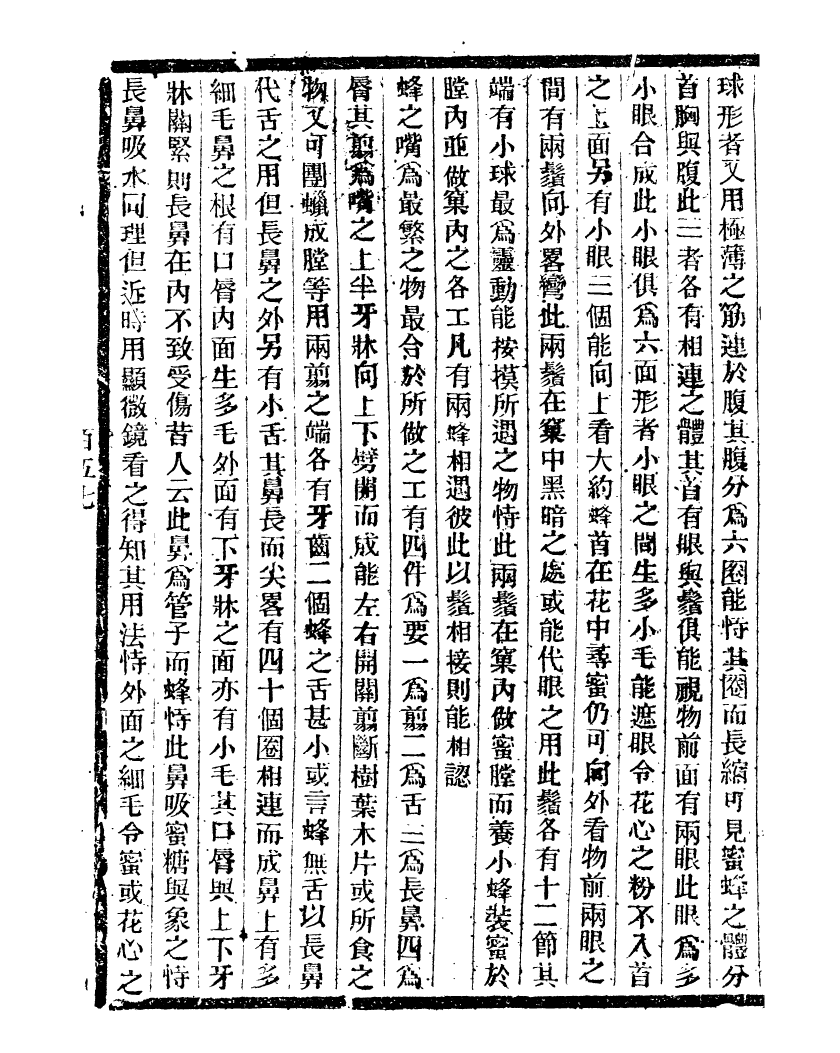 球形者又用極薄之筋連於腹其腹分爲六圈能恃其圈而長縮可見蜜蜂之體分
首胸與腹此三者各有相連之體其首有眼與鬚俱能視物前面有兩眼此眼爲多
小眼合成此小眼俱爲六面形者小眼之間生多小毛能遮眼令花心之粉不入首
之上面另有小眼三個能向上看大約蜂首在花中尋蜜仍可向外看物前兩眼之
間有兩鬚向外畧彎此兩鬚在窠中黑暗之處或能代眼之用此鬚各有十二節其
端有小球最爲靈動能按摸所遇之物恃此兩鬚在窠內做蜜膛而養小蜂裝蜜於
膛內並做窠內之各工凡有兩蜂相遇彼此以鬚相接則能相認
蜂之嘴爲最繁之物最合於所做之工有四件爲要一爲剪二爲舌三爲長鼻四爲
脣其剪爲嘴之上半牙牀向上下劈開而成能左右開關剪斷樹葉木片或所食之
物又可團蠟成膛等用兩剪之端各有牙齒二個蜂之舌甚小或言蜂無舌以長鼻
代舌之用但長鼻之外另有小舌其鼻長而尖畧有四十個圈相連而成鼻上有多
細毛鼻之根有口脣內面生多毛外面有下牙牀之面亦有小毛其口脣與上下牙
牀關緊則長鼻在內不致受傷昔人云此鼻爲管子而蜂恃此鼻吸蜜糖與象之恃
長鼻吸水同理但近時用顯微鏡看之得知其用法恃外面之細毛令蜜或花心之
百五七